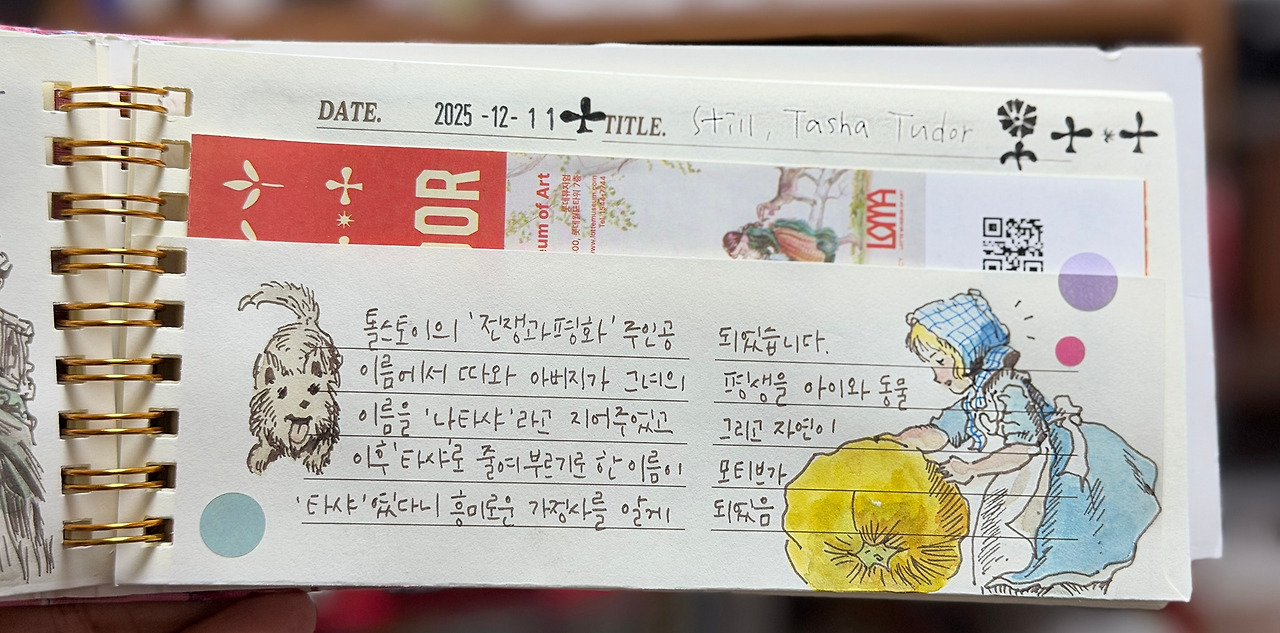 DATE. 2025-12-11 TITLE. Still, Tasha Tudor
DOR
um of Art
롯데뮤지엄
00, 롯데월드타워 7층
www.lottemuseum.com
LOMA
톨스토이의 '전쟁과평화' 주인공
이름에서 따와 아버지가 그녀의
이름을 '나타샤'라고 지어주었고
이후'타샤'로 줄여부르기로 한 이름이
'타샤'였다니 흥미로운 가정사를 알게
되었습니다.
평생을 아이와 동물
그리고 자연이
모티브가
되었음